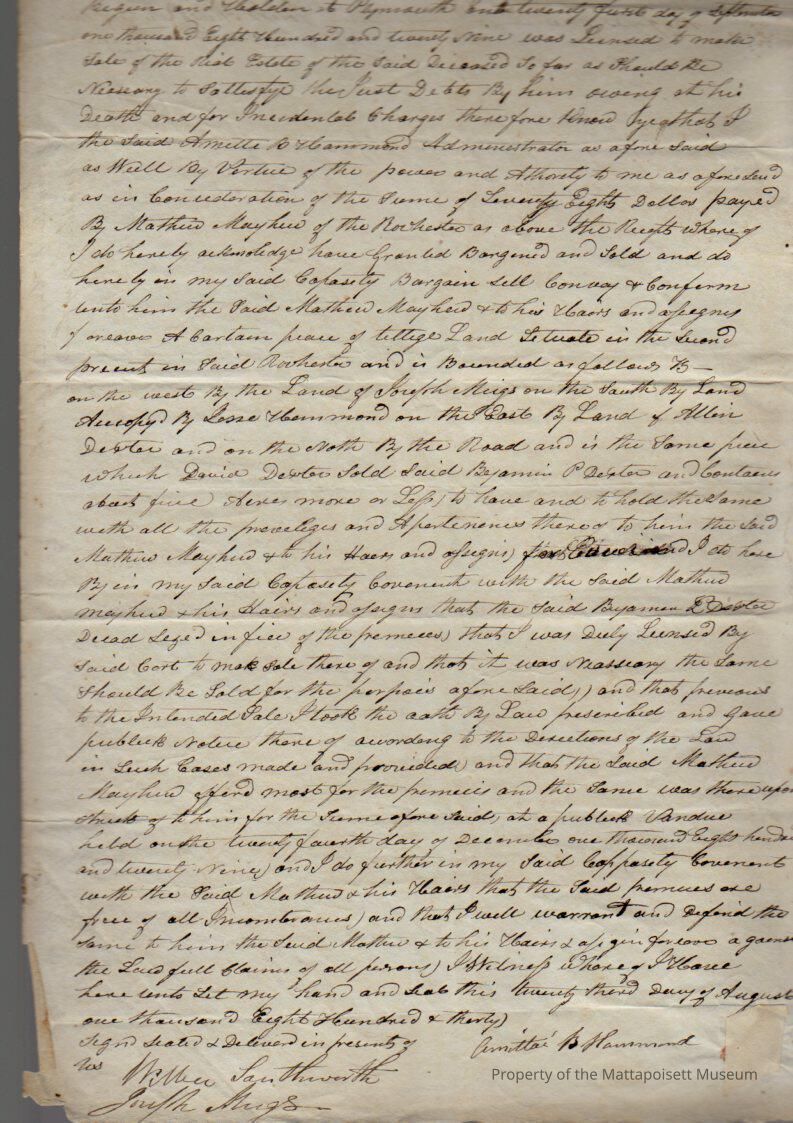 Begun and Holden at Plymouth on the twenty first day of September
one thousand Eight Hundred and twenty Nine was Licensed to make
Sale of the Real Estate of the Said Deceased So far as Should Be
Nessary to Sattesfye the Just Debts By him owing at his
Death and for Inecidental Charges there fore Know ye that I
the Said Amitte B Hammond Administrator as afore Said
as Well By Vertue of the power and Athority to me as afore Said
as in Concideration of the Sume of Seventy Eight Dollos payed
By Mathew Mayhew of the Rochester as above the Recept Where of
I do hereby acknolidge have Granted Bargened and Sold and do
hereby in my Said Capasity Bargain Sell Convay & Conferm
unto him the Said Mathew Mayhew & to his Hairs and assegns
foreavor A Cartain peace of tillige Land Setuate in the Second
precnt in Said Rochester and is Bounded as follows to
on the west By the Land of Joseph Meigs on the South By Land
Accopyd By Jesse Hammond on the East By Land of Allin
Dexter and on the Noth By the Road and is the Same peice
which David Dexter Sold Said Bejamin P Dexter and Contaens
about five Acres more or Less) to have and to hold the Same
with all the preveliges and Apertenences there of to him the Said
Mathew Mayhew & to his Hairs and assegns) for and I do here
By in my Said Capasety Covenent with the Said Mathew
Mayhew & his Hairs and assegns that the Said Bejamen P Dexter
Dicad Sezed in fiee of the premeces) that I was Duly Licensed By
Said Cort to mak Sale there of and that it was Nessesary the Same
Should Be Sold for the porposis afore Said,) and that prevous
to the Intended Sale I took the oath By Law prescribed and Gave
publick Notice there of acording to the Directions of the Law
in Such Cases made and provided) and that the Said Mathew
Mayhew offerd most for the premeis and the Same was there upon
Struck of to him for the Sume afore Said, at a publick Vandue
held on the twenty fourth day of December one thousand Eight hundr
and twenty Nine) and I do further in my Said Cappasety Covenent
with the Said Mathew & his Hairs that the Said premices are
free of all Incombrances) and that I will warrant and Defend the
Same to him the Said Mathew & to his Hairs & assgin forevor a gaenst
the Lawfull Claims of all persons) I Witness where of I Have
here unto Set my hand and Seal this twenty third Day of August
one thousand Eight Hundred & therty)
Segnd Sealed & Deliverd in presents of
us
Amittai B Hammond
Wilber Southworth
Joseph Meigs
Property of the Mattapoisett Museum